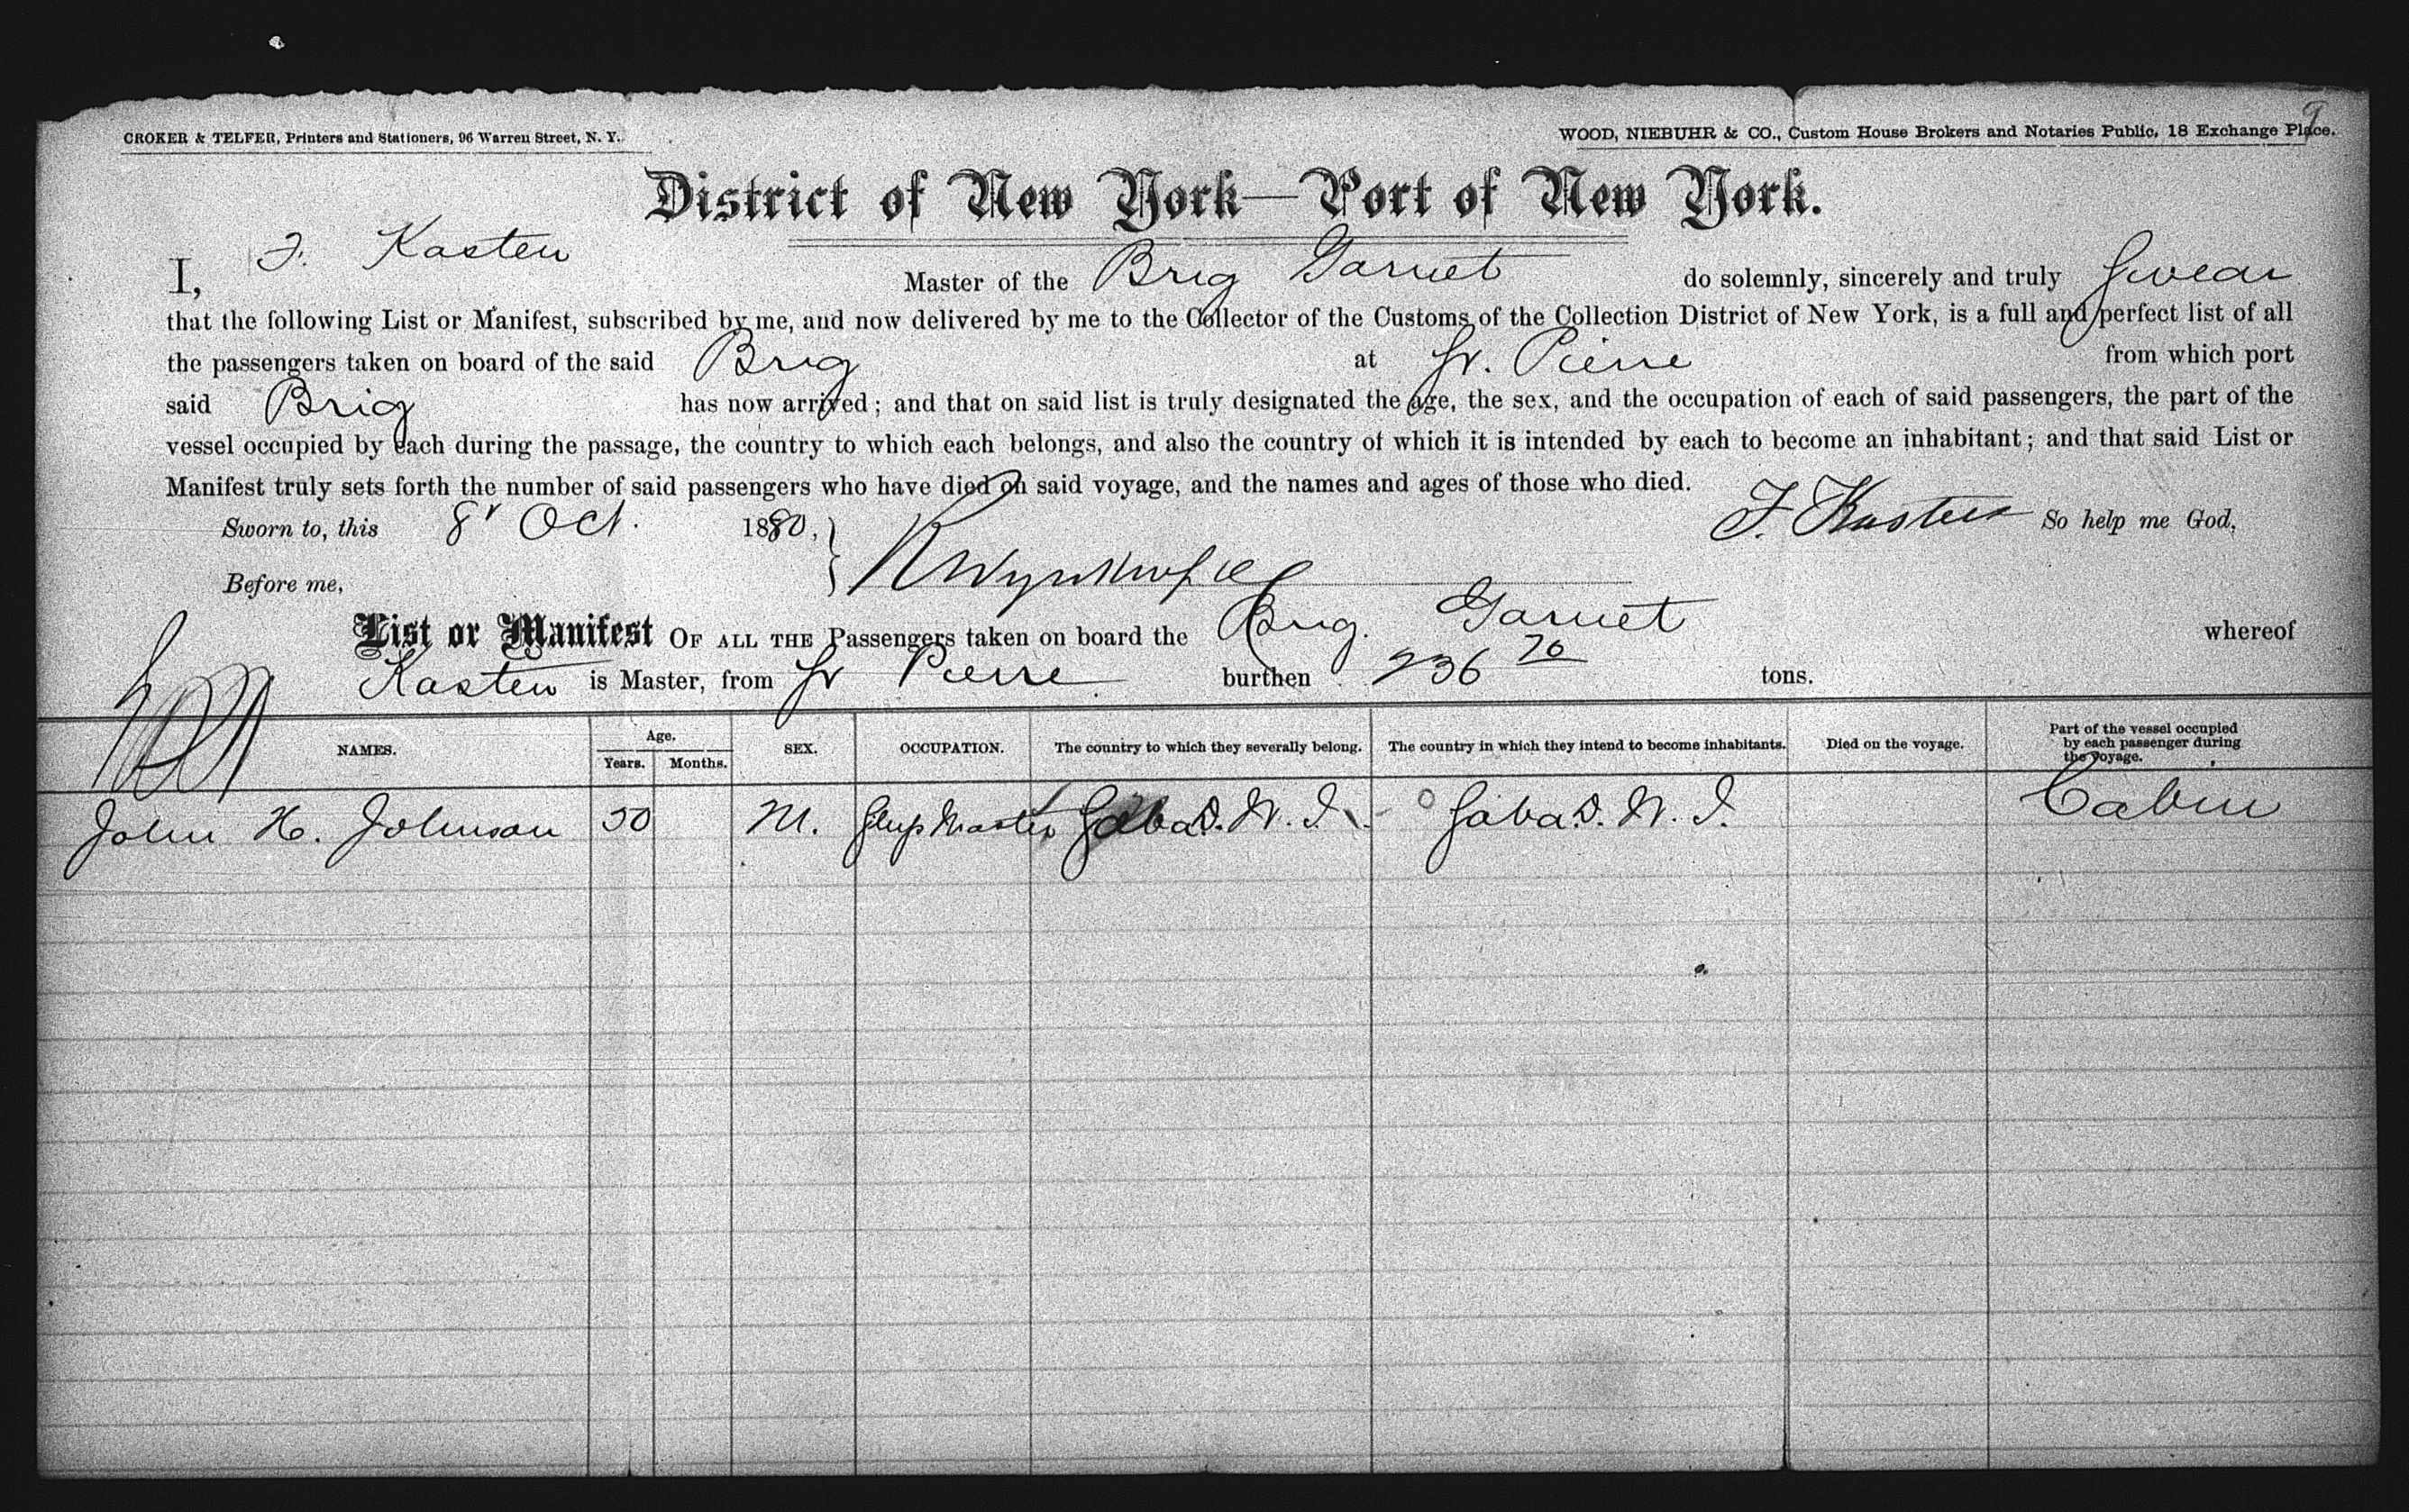 9
CROKER & TELFER, Printers and Stationers, 96 Warren Street, N. Y.
WOOD, NIEBUHR & CO., Custom House Brokers and Notaries Public, 18 Exchange Place.
District of New York—Port of New York.
I, F. Kasten Master of the Brig Garnet do solemnly, sincerely and truly Swear
that the following List or Manifest, subscribed by me, and now delivered by me to the Collector of the Customs of the Collection District of New York, is a full and perfect list of all
the passengers taken on board of the said Brig at St. Pierre from which port
said Brig has now arrived; and that on said list is truly designated the age, the sex, and the occupation of each of said passengers, the part of the
vessel occupied by each during the passage, the country to which each belongs, and also the country of which it is intended by each to become an inhabitant; and that said List or
Manifest truly sets forth the number of said passengers who have died on said voyage, and the names and ages of those who died.
Sworn to, this 8 Oct. 1880, F. Kasten So help me God,
Before me,
List or Manifest OF ALL THE Passengers taken on board the Brig. Garnet whereof
Kasten is Master, from St Pierre burthen 236 70 tons.
NAMES. Age. Years. Months. SEX. OCCUPATION. The country to which they severally belong. The country in which they intend to become inhabitants. Died on the voyage. Part of the vessel occupied by each passenger during the voyage.
John H. Johnson 50 M. Ship Master Saba D. W. I. Saba D. W. I. Cabin